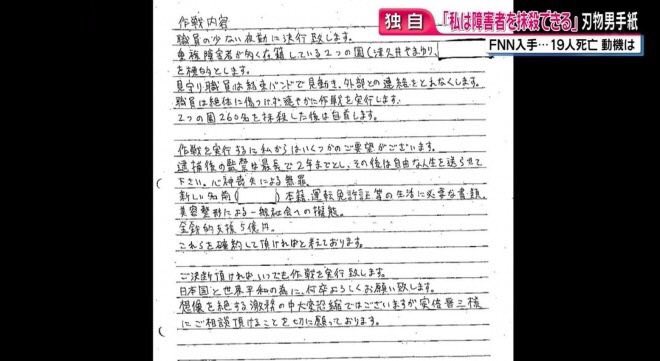 独自
「私は障害者を抹殺できる」刃物男手紙
FNN入手…19人死亡 動機は
作戦内容
職員の少ない夜勤に決行致します。
重複障害者が多く在籍している2つの園(津久井やまゆり、
を標的とします。
見守り職員は結束バンドで身動き、外部との連絡をとれなくします。
職員は絶体に傷つけず速やかに作戦を実行します。
2つの園260名を抹殺した後は自首します。
作戦を実行するに私からはいくつかのご要望がございます。
逮捕後の監禁は最長で2年までとし、その後は自由な人生を送らせて
下さい。心神喪失による無罪。
新しい名前( )本籍、運転免許証等の生活に必要な書類。
美容整形による一般社会への擬態。
金銭的支援5億円。
これらを確約して頂ければと考えております。
ご決断頂ければいつでも作戦を実行致します。
日本国と世界平和の為に、何卒よろしくお願い致します。
想像を絶する激務の中大変恐縮ではございますが、安倍晋三様
にご相談頂けることを切に願っております。